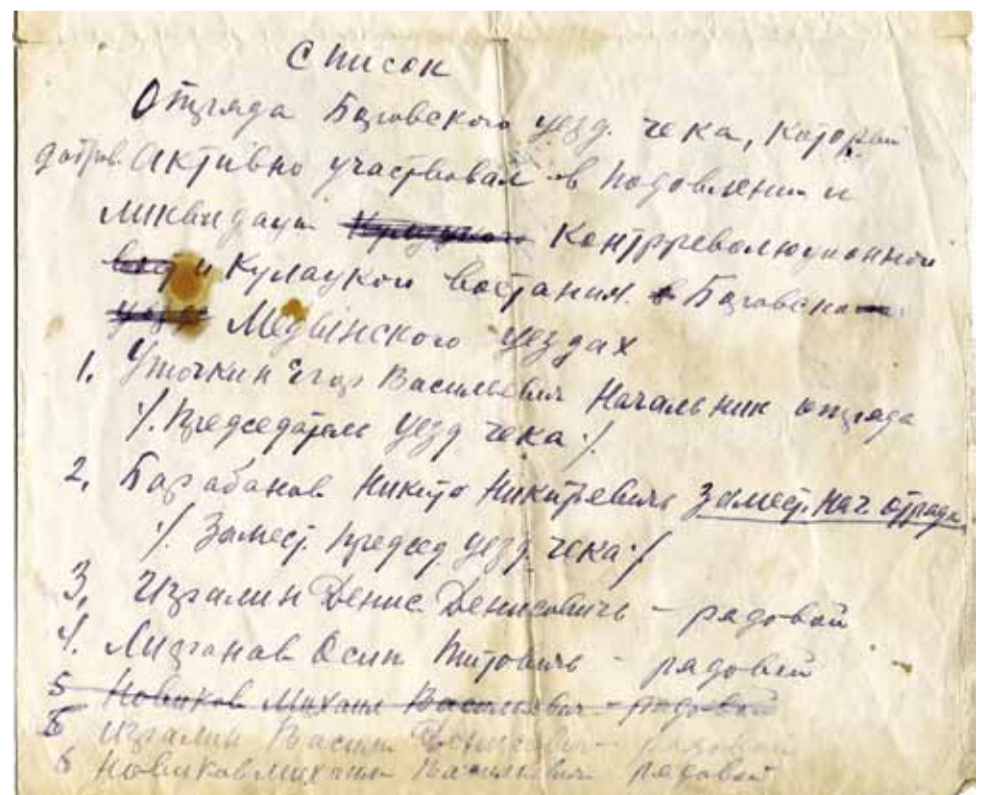 Список
Отряда Боровского уезд. чека, который
добров. Активно участвовал в подовлении и
ликвидации контрреволюционной
и Кулацкой востания в Боровско
Медынского уездах
1. Уточкин Егор Васильевич Начальник отряда
/. Председатель уезд чека ./
2. Барабанов Никито Никитьевичь Замест. нач. отряда
/. Замест. председ уезд. чека ./
3, Изралин Денис Денисовичь - рядовой
4. Осип Титовичь - рядовой
5 Новиков Михаил Васильевич - рядовой
5 Изралин Васили Денисович - рядовой
6 Новиков Михаил Васильевич рядовой